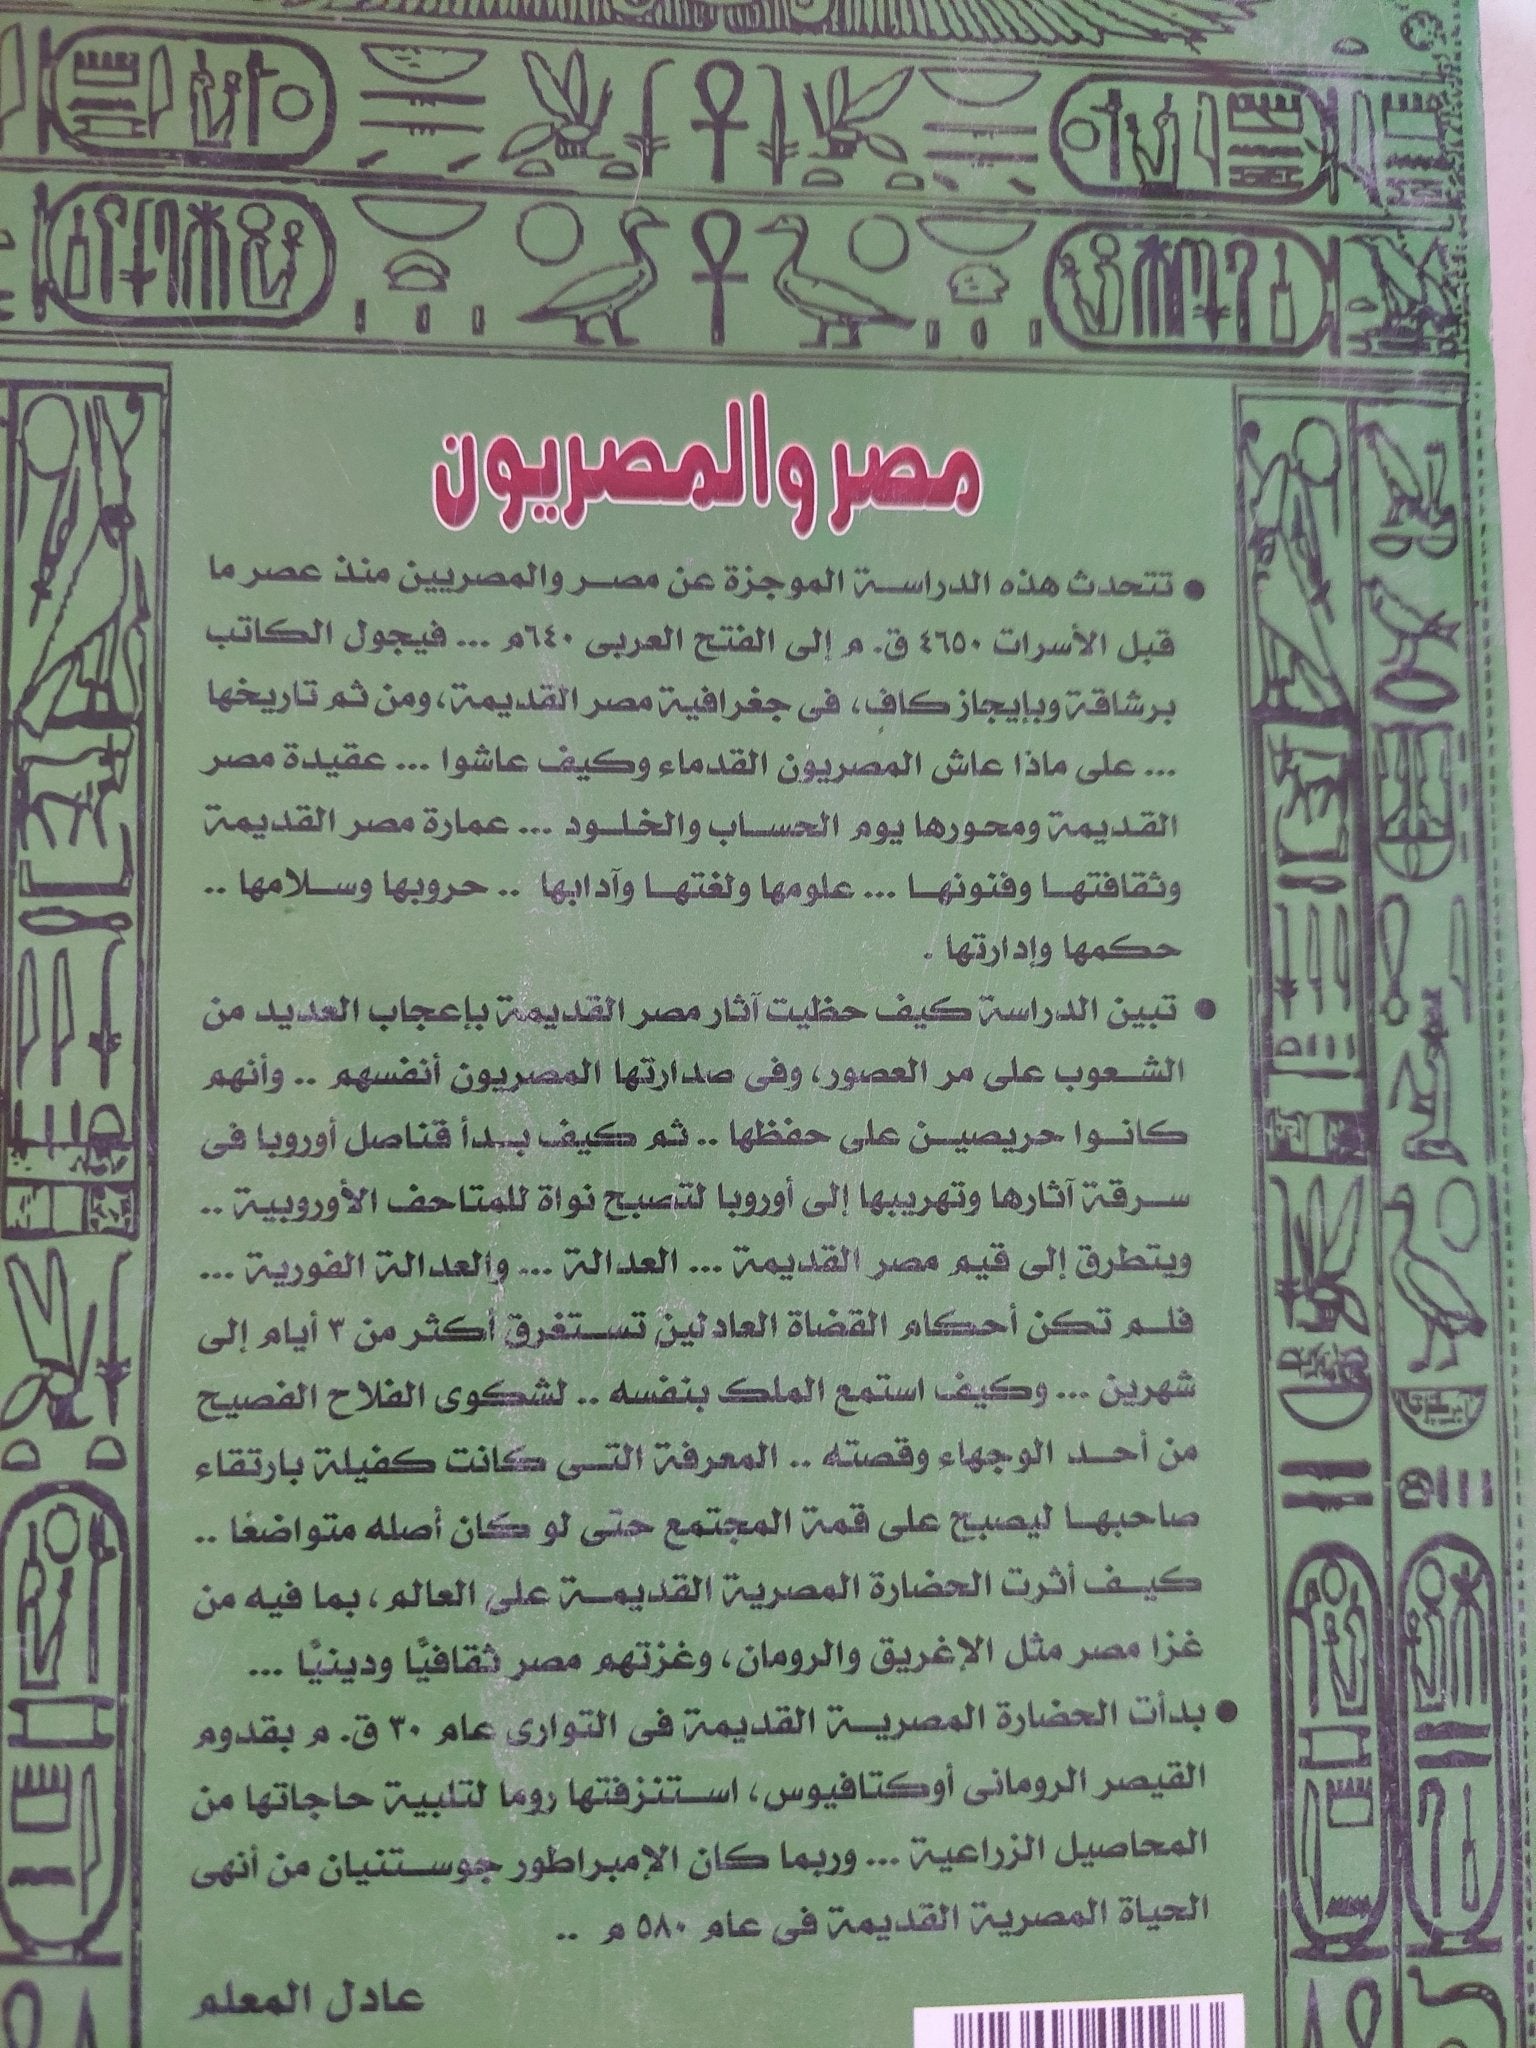 مصر والمصريون
● تتحدث هذه الدراسة الموجزة عن مصر والمصريين منذ عصر ما
قبل الأسرات ٤٦٥٠ ق. م إلى الفتح العربى ٦٤٠م ... فيجول الكاتب
برشاقة وبإيجاز كافٍ، فى جغرافية مصر القديمة، ومن ثم تاريخها
... على ماذا عاش المصريون القدماء وكيف عاشوا ... عقيدة مصر
القديمة ومحورها يوم الحساب والخلود ... عمارة مصر القديمة
وثقافتها وفنونها ... علومها ولغتها وآدابها .. حروبها وسلامها ..
حكمها وإدارتها .
● تبين الدراسة كيف حظيت آثار مصر القديمة بإعجاب العديد من
الشعوب على مر العصور، وفى صدارتها المصريون أنفسهم .. وأنهم
كانوا حريصين على حفظها .. ثم كيف بدأ قناصل أوروبا فى
سرقة آثارها وتهريبها إلى أوروبا لتصبح نواة للمتاحف الأوروبية ..
ويتطرق إلى قيم مصر القديمة ... العدالة ... والعدالة الفورية ...
فلم تكن أحكام القضاة العادلين تستغرق أكثر من ٣ أيام إلى
شهرين ... وكيف استمع الملك بنفسه .. لشكوى الفلاح الفصيح
من أحد الوجهاء وقصته .. المعرفة التى كانت كفيلة بارتقاء
صاحبها ليصبح على قمة المجتمع حتى لو كان أصله متواضعًا ..
كيف أثرت الحضارة المصرية القديمة على العالم، بما فيه من
غزا مصر مثل الإغريق والرومان، وغزتهم مصر ثقافيًا ودينيًا ...
● بدأت الحضارة المصرية القديمة فى التوارى عام ٣٠ ق. م بقدوم
القيصر الرومانى أوكتافيوس، استنزفتها روما لتلبية حاجاتها من
المحاصيل الزراعية ... وربما كان الإمبراطور جوستنيان من أنهى
الحياة المصرية القديمة فى عام ٥٨٠ م ..
عادل المعلم